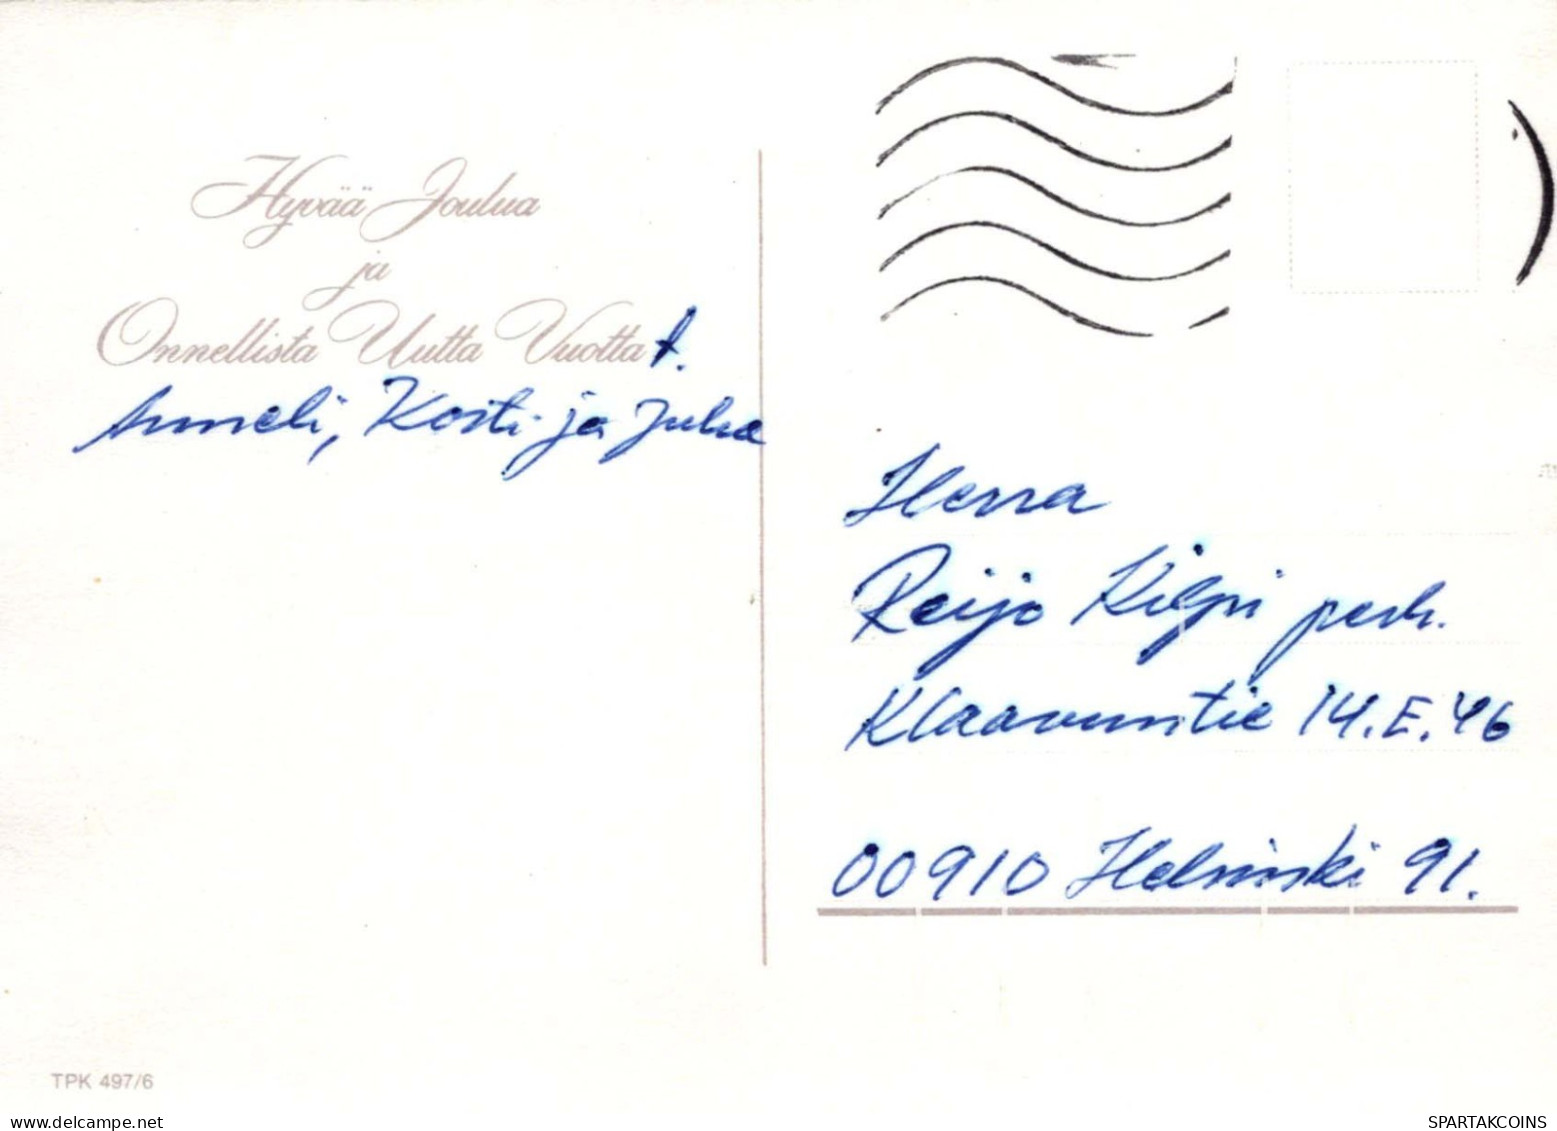 Hyvää Joulua
ja
Onnellista Uutta Vuotta
t.
Anneli, Kosti ja Juha
Herra
Reijo Kilpi perh.
Klaavuntie 14.E.46
00910 Helsinki 91.
TPK 497/6
SPARTAKCOINS